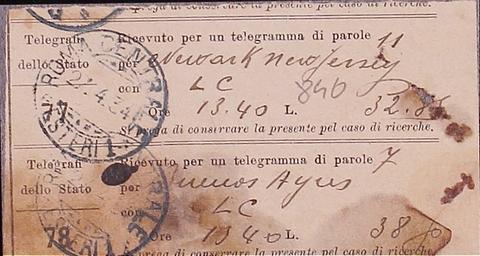 Si prega di conservare la presente pel caso di ricerche.
Telegrafi Ricevuto per un telegramma di parole 11
dello Stato per Newark New Jersey
con LC 840
Ore 13.40 L. 32.
Si prega di conservare la presente pel caso di ricerche.
ROMA CENTRALE
ESTERI 1
Telegrafi Ricevuto per un telegramma di parole 7
dello Stato per Buenos Ayres
con LC
Ore 13.40 L. 38
Si prega di conservare la presente pel caso di ricerche.
78 ESTERI 1